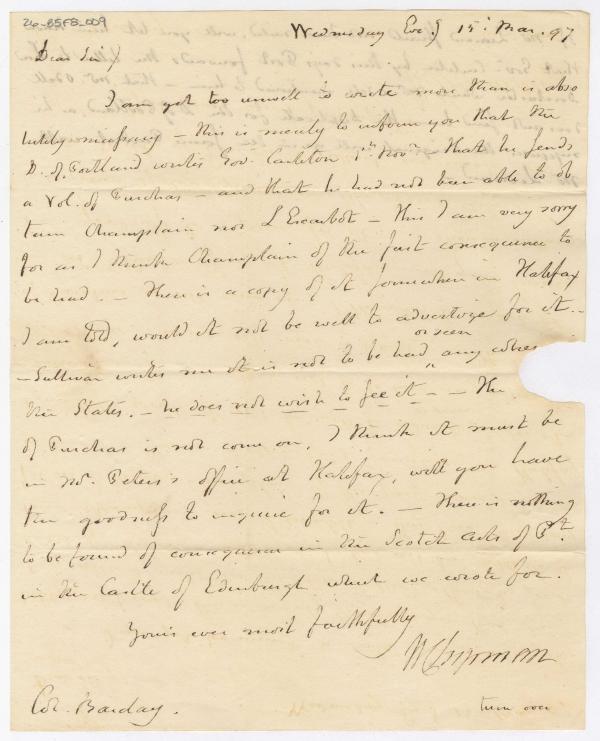 26-85F8-009
Wednesday Eve.g 15th Mar. 97
Dear Sir
I am yet too unwell to write more than is abso
lutely necessary — this is merely to inform you that the
D. of Portland writes Gov. Carleton 1st Novr. — that he sends
a Vol. of Purchas — and that he had not been able to ob
tain Champlain nor L'Escarbot — this I am very sorry
for as I think Champlain of the first consequence to
be had. — there is a copy of it somewhere in Halifax
I am told, would it not be well to advertize for it —
or seen
— Sullivan writes me it is not to be had any where
the States. — he does not wish to see it — — The
of Purchas is not come on, I think it must be
in Mr. Peters's office at Halifax, will you have
the goodness to inquire for it. — There is nothing
to be found of consequence in the Scotch Acts of Pt.
in the Castle of Edinburgh which we wrote for.
Yours ever most faithfully
W Chipman
Col. Barclay.
turn over